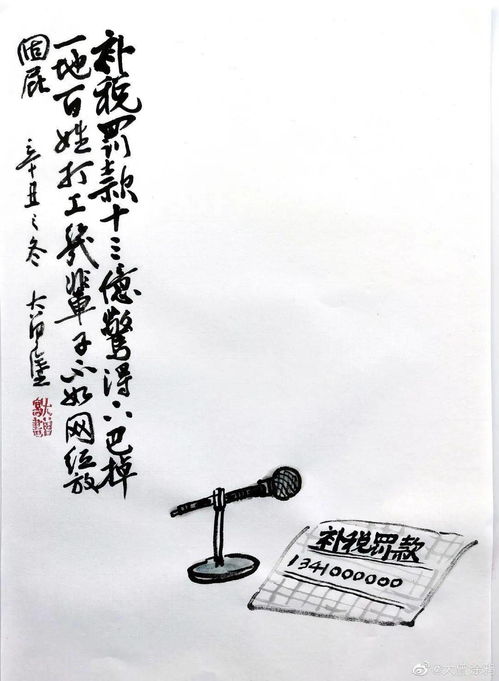 补税罚款十三億驚得下巴掉
一地百姓打工幾輩子不如网红放
個屁 辛丑之冬
补税罚款
1341000000